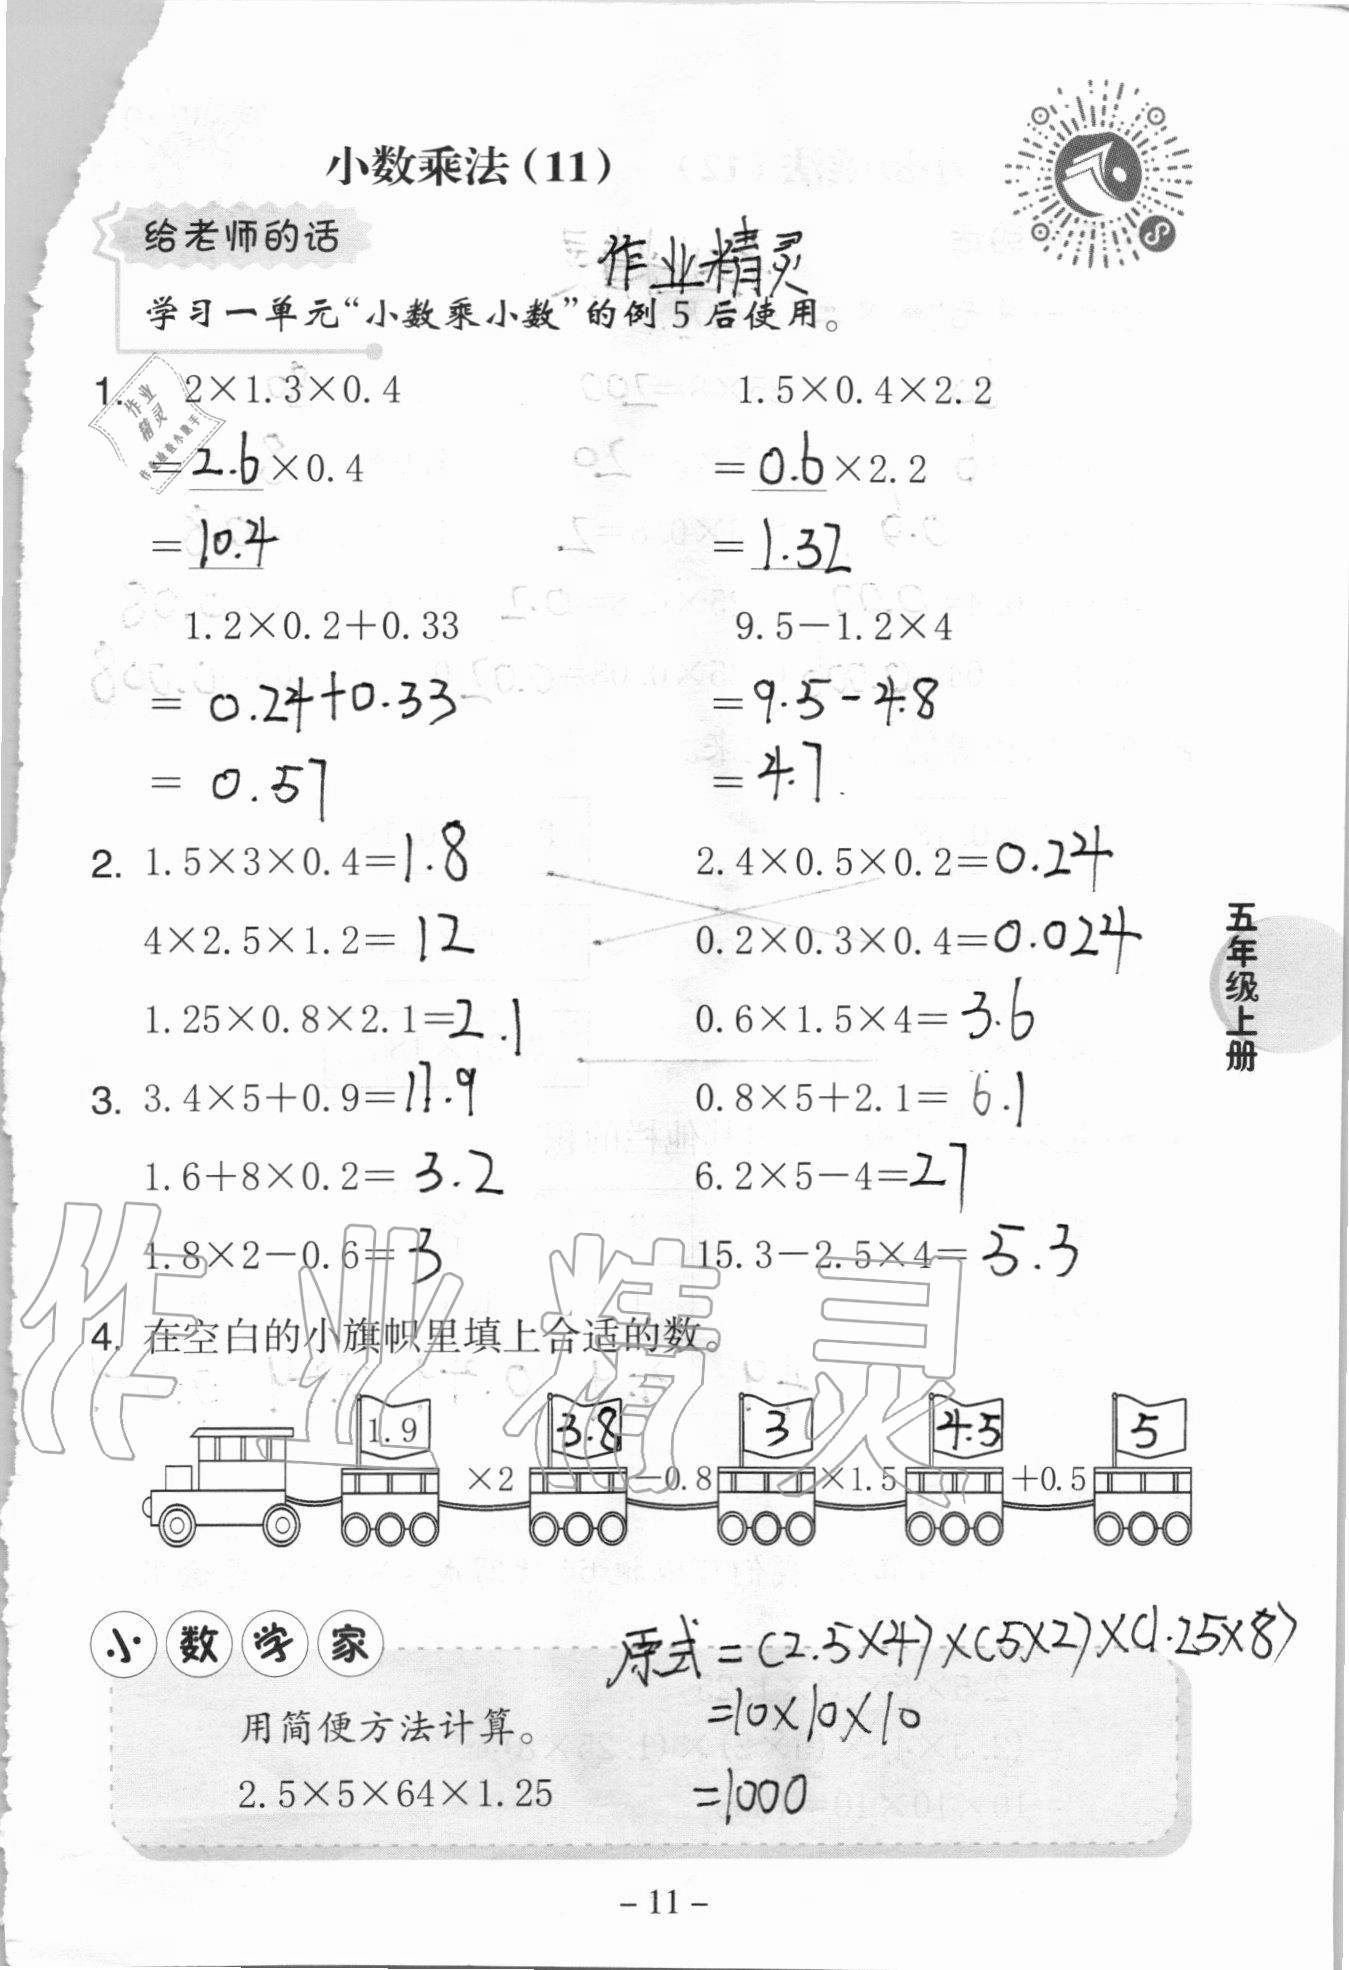 小数乘法(11)
给老师的话
作业精灵
学习一单元“小数乘小数”的例5后使用。
1. 2×1.3×0.4 1.5×0.4×2.2
=2.6×0.4 =0.6×2.2
=10.4 =1.32
1.2×0.2+0.33 9.5-1.2×4
=0.24+0.33 =9.5-4.8
=0.57 =4.7
作业
精灵
2. 1.5×3×0.4=1.8 2.4×0.5×0.2=0.24
4×2.5×1.2=12 0.2×0.3×0.4=0.024
1.25×0.8×2.1=2.1 0.6×1.5×4=3.6
3. 3.4×5+0.9=17.9 0.8×5+2.1=6.1
1.6+8×0.2=3.2 6.2×5-4=27
1.8×2-0.6=3 15.3-2.5×4=5.3
五年级上册
作业精灵
4. 在空白的小旗帜里填上合适的数。
1.9 3.8 3 4.5 5
×2 -0.8 ×1.5 +0.5
小数学家
用简便方法计算。
2.5×5×64×1.25
原式=(2.5×4)×(5×2)×(1.25×8)
=10×10×10
=1000
- 11 -